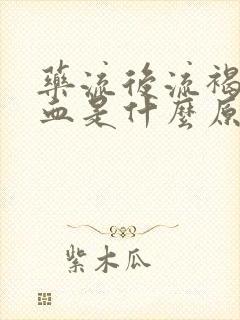 藥流後流褐
血是什麼原
紫木瓜